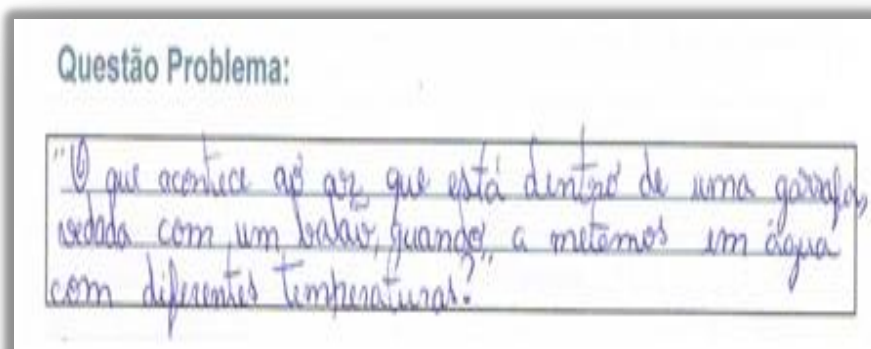 Questão Problema:
"O que acontece ao ar que está dentro de uma garrafa,
vedada com um balão, quando a metemos em água
com diferentes temperaturas?"